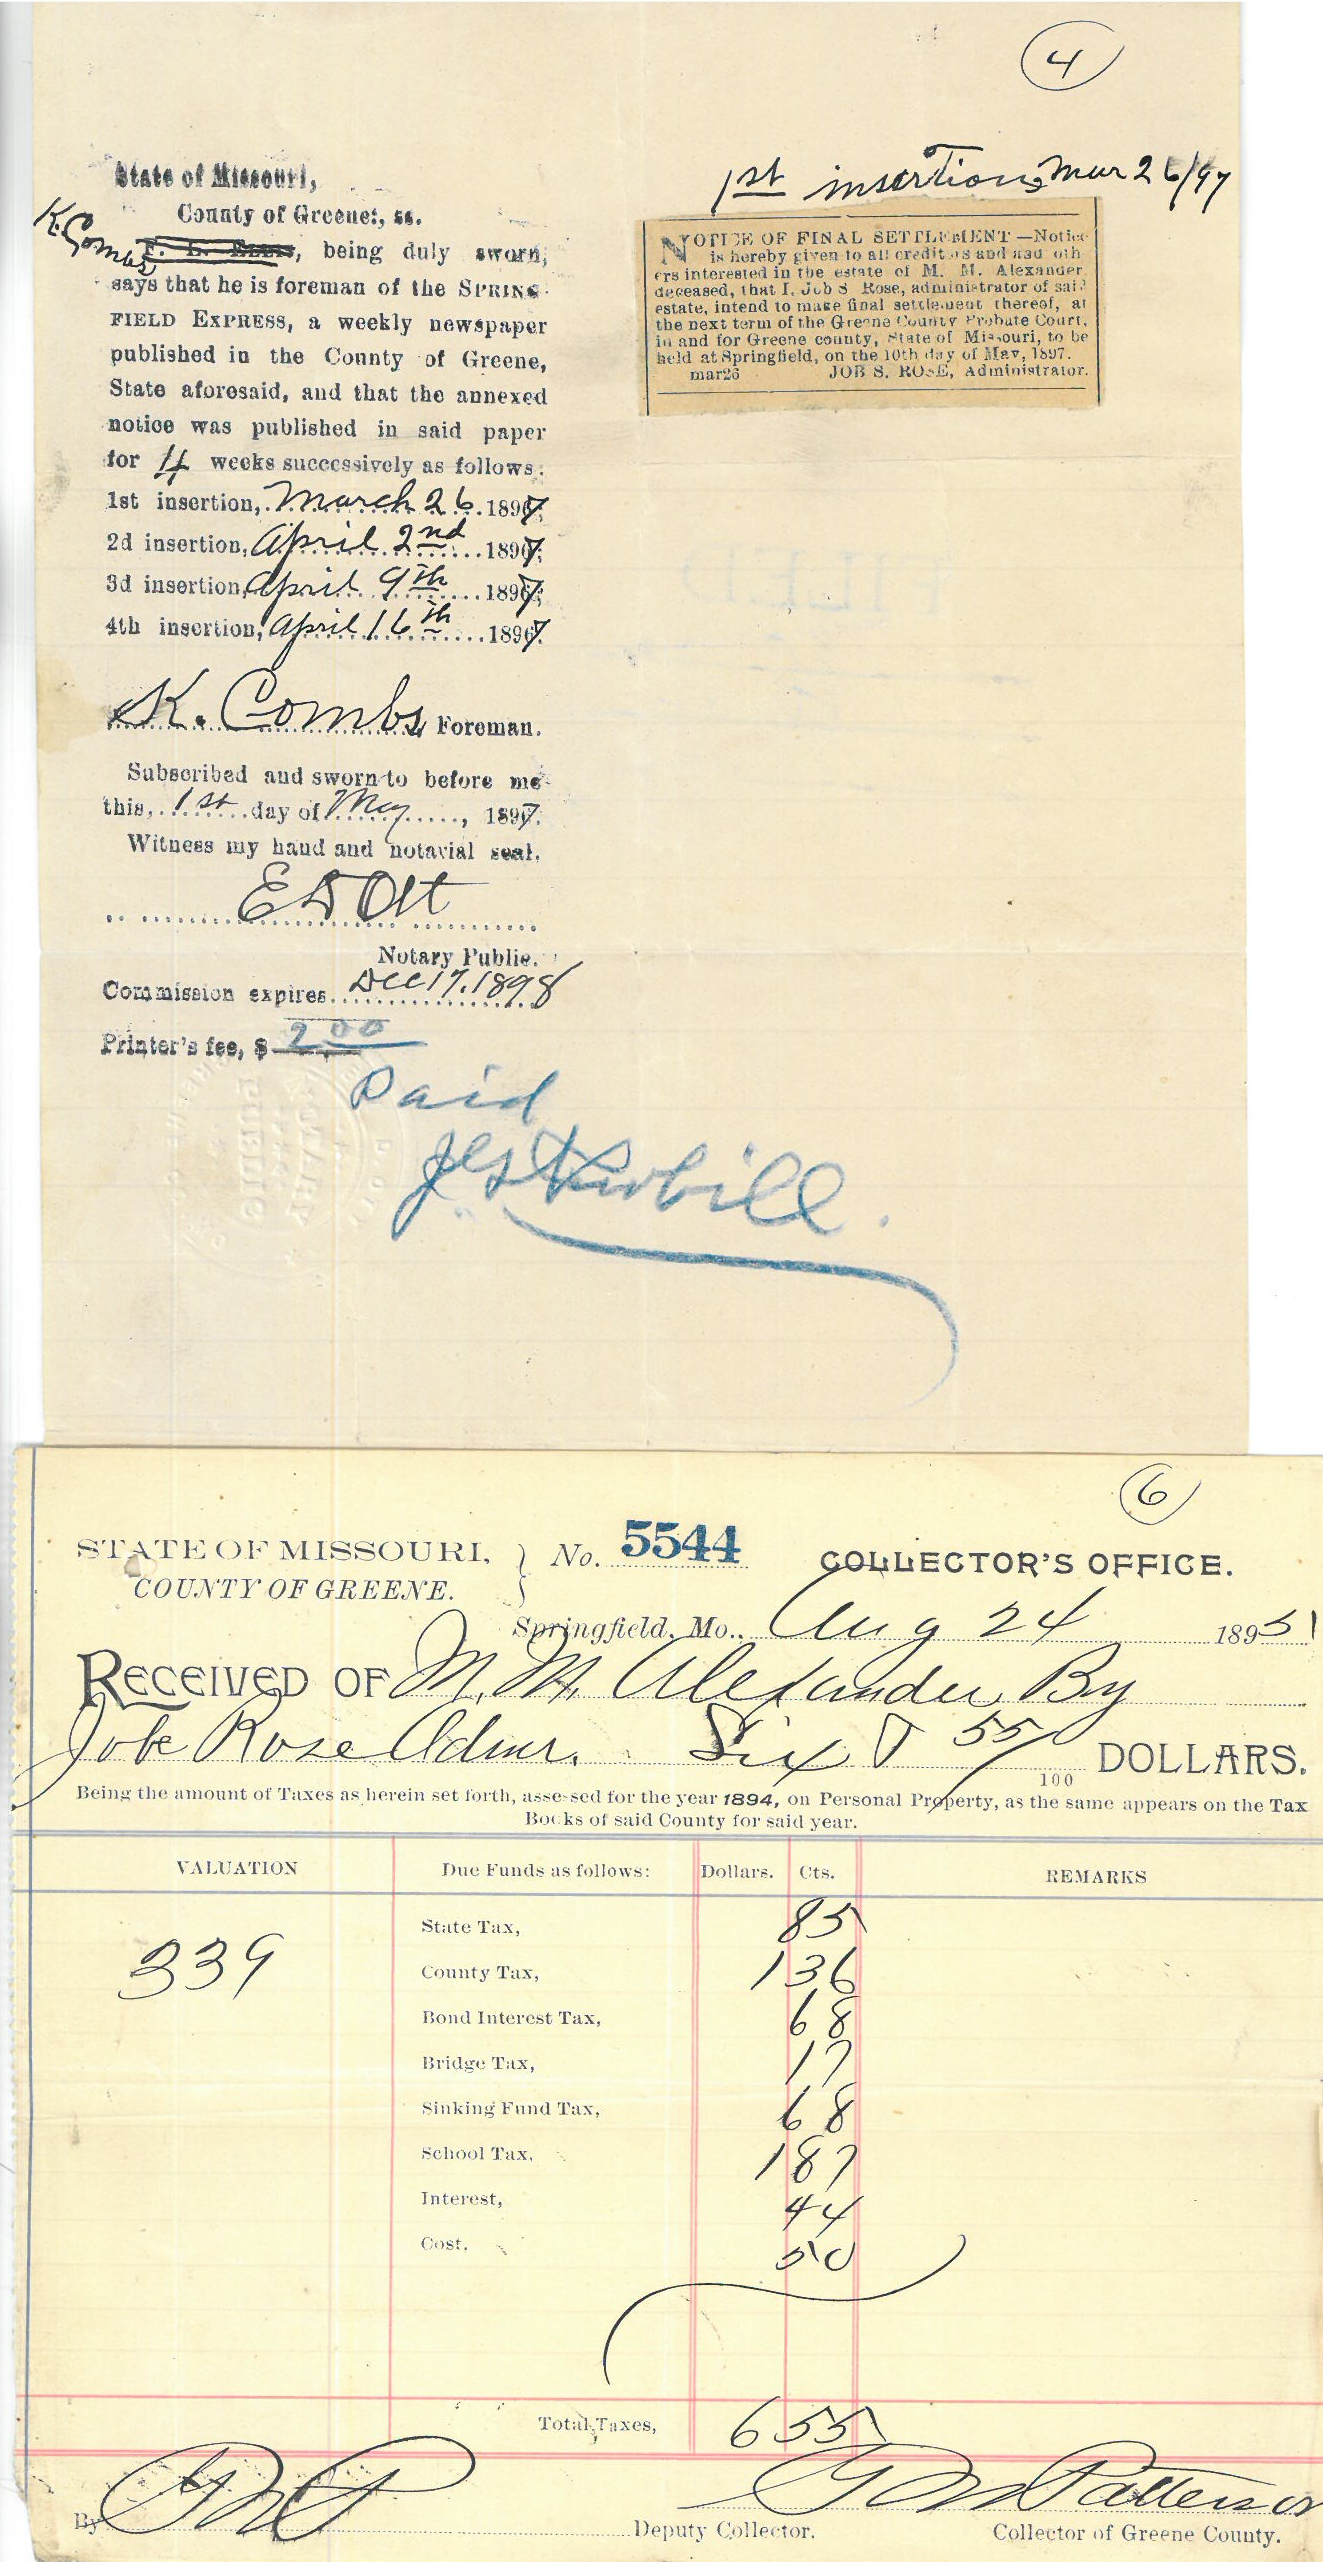 4
1st insertion, Mar 26/97
State of Missouri,
County of Greene, ss.
K. Combs
being duly sworn,
says that he is foreman of the SPRING-
FIELD EXPRESS, a weekly newspaper
published in the County of Greene,
State aforesaid, and that the annexed
notice was published in said paper
for 4 weeks successively as follows:
1st insertion, March 26 1897;
2d insertion, April 2nd 1897;
3d insertion, April 9th 1897;
4th insertion, April 16th 1897.
K. Combs Foreman.
Subscribed and sworn to before me
this, 1st day of May, 1897.
Witness my hand and notarial seal.
E D Ott
Notary Public.
Commission expires Dec 17, 1898
Printer's fee, $ 2 00
Paid
NOTICE OF FINAL SETTLEMENT—Notice
is hereby given to all creditors and aud oth
ers interested in the estate of M. M. Alexander
deceased, that I, Job S Rose, administrator of said
estate, intend to make final settlement thereof, at
the next term of the Greene County Probate Court,
in and for Greene county, State of Missouri, to be
held at Springfield, on the 10th day of May, 1897.
mar26 JOB S. ROSE, Administrator.
FILED
NOTARY
PUBLIC
6
STATE OF MISSOURI, } No. 5544 COLLECTOR'S OFFICE.
COUNTY OF GREENE.
Springfield, Mo., Aug 24 1895
RECEIVED OF M. M. Alexander By
Jobe Rose Admr. Six & 55/100 DOLLARS.
Being the amount of Taxes as herein set forth, assessed for the year 1894, on Personal Property, as the same appears on the Tax
Books of said County for said year.
VALUATION Due Funds as follows: Dollars. Cts. REMARKS
State Tax, 85
339
County Tax, 1 36
Bond Interest Tax, 68
Bridge Tax, 17
Sinking Fund Tax, 68
School Tax, 1 87
Interest, 44
Cost. 50
Total Taxes, 6 55
By Deputy Collector. G M Patterson
Collector of Greene County.